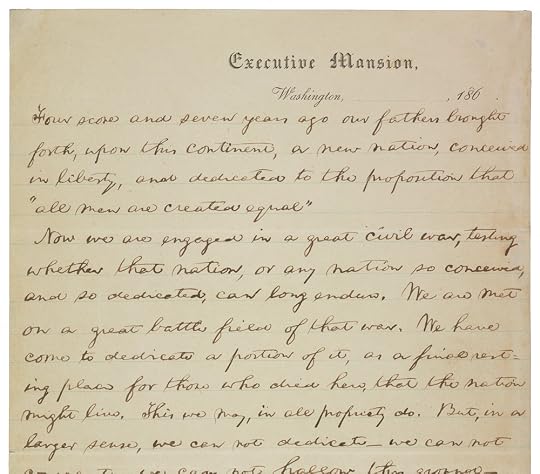 Executive Mansion,
Washington, , 186 .
Four score and seven years ago our fathers brought
forth, upon this continent, a new nation, conceived
in liberty, and dedicated to the proposition that
"all men are created equal"
Now we are engaged in a great civil war, testing
whether that nation, or any nation so conceived,
and so dedicated, can long endure. We are met
on a great battle field of that war. We have
come to dedicate a portion of it, as a final rest-
ing place for those who died here, that the nation
might live. This we may, in all propriety do. But, in a
larger sense, we can not dedicate – we can not
we can not hallow this ground –